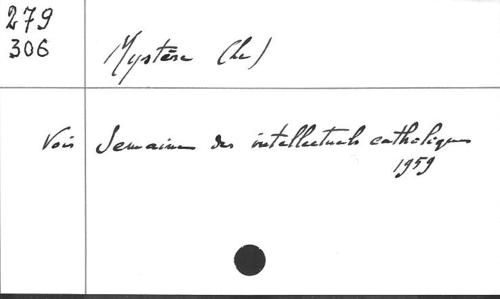 279
306
Mystère (Le)
Voir Semaine des intellectuels catholiques
1959